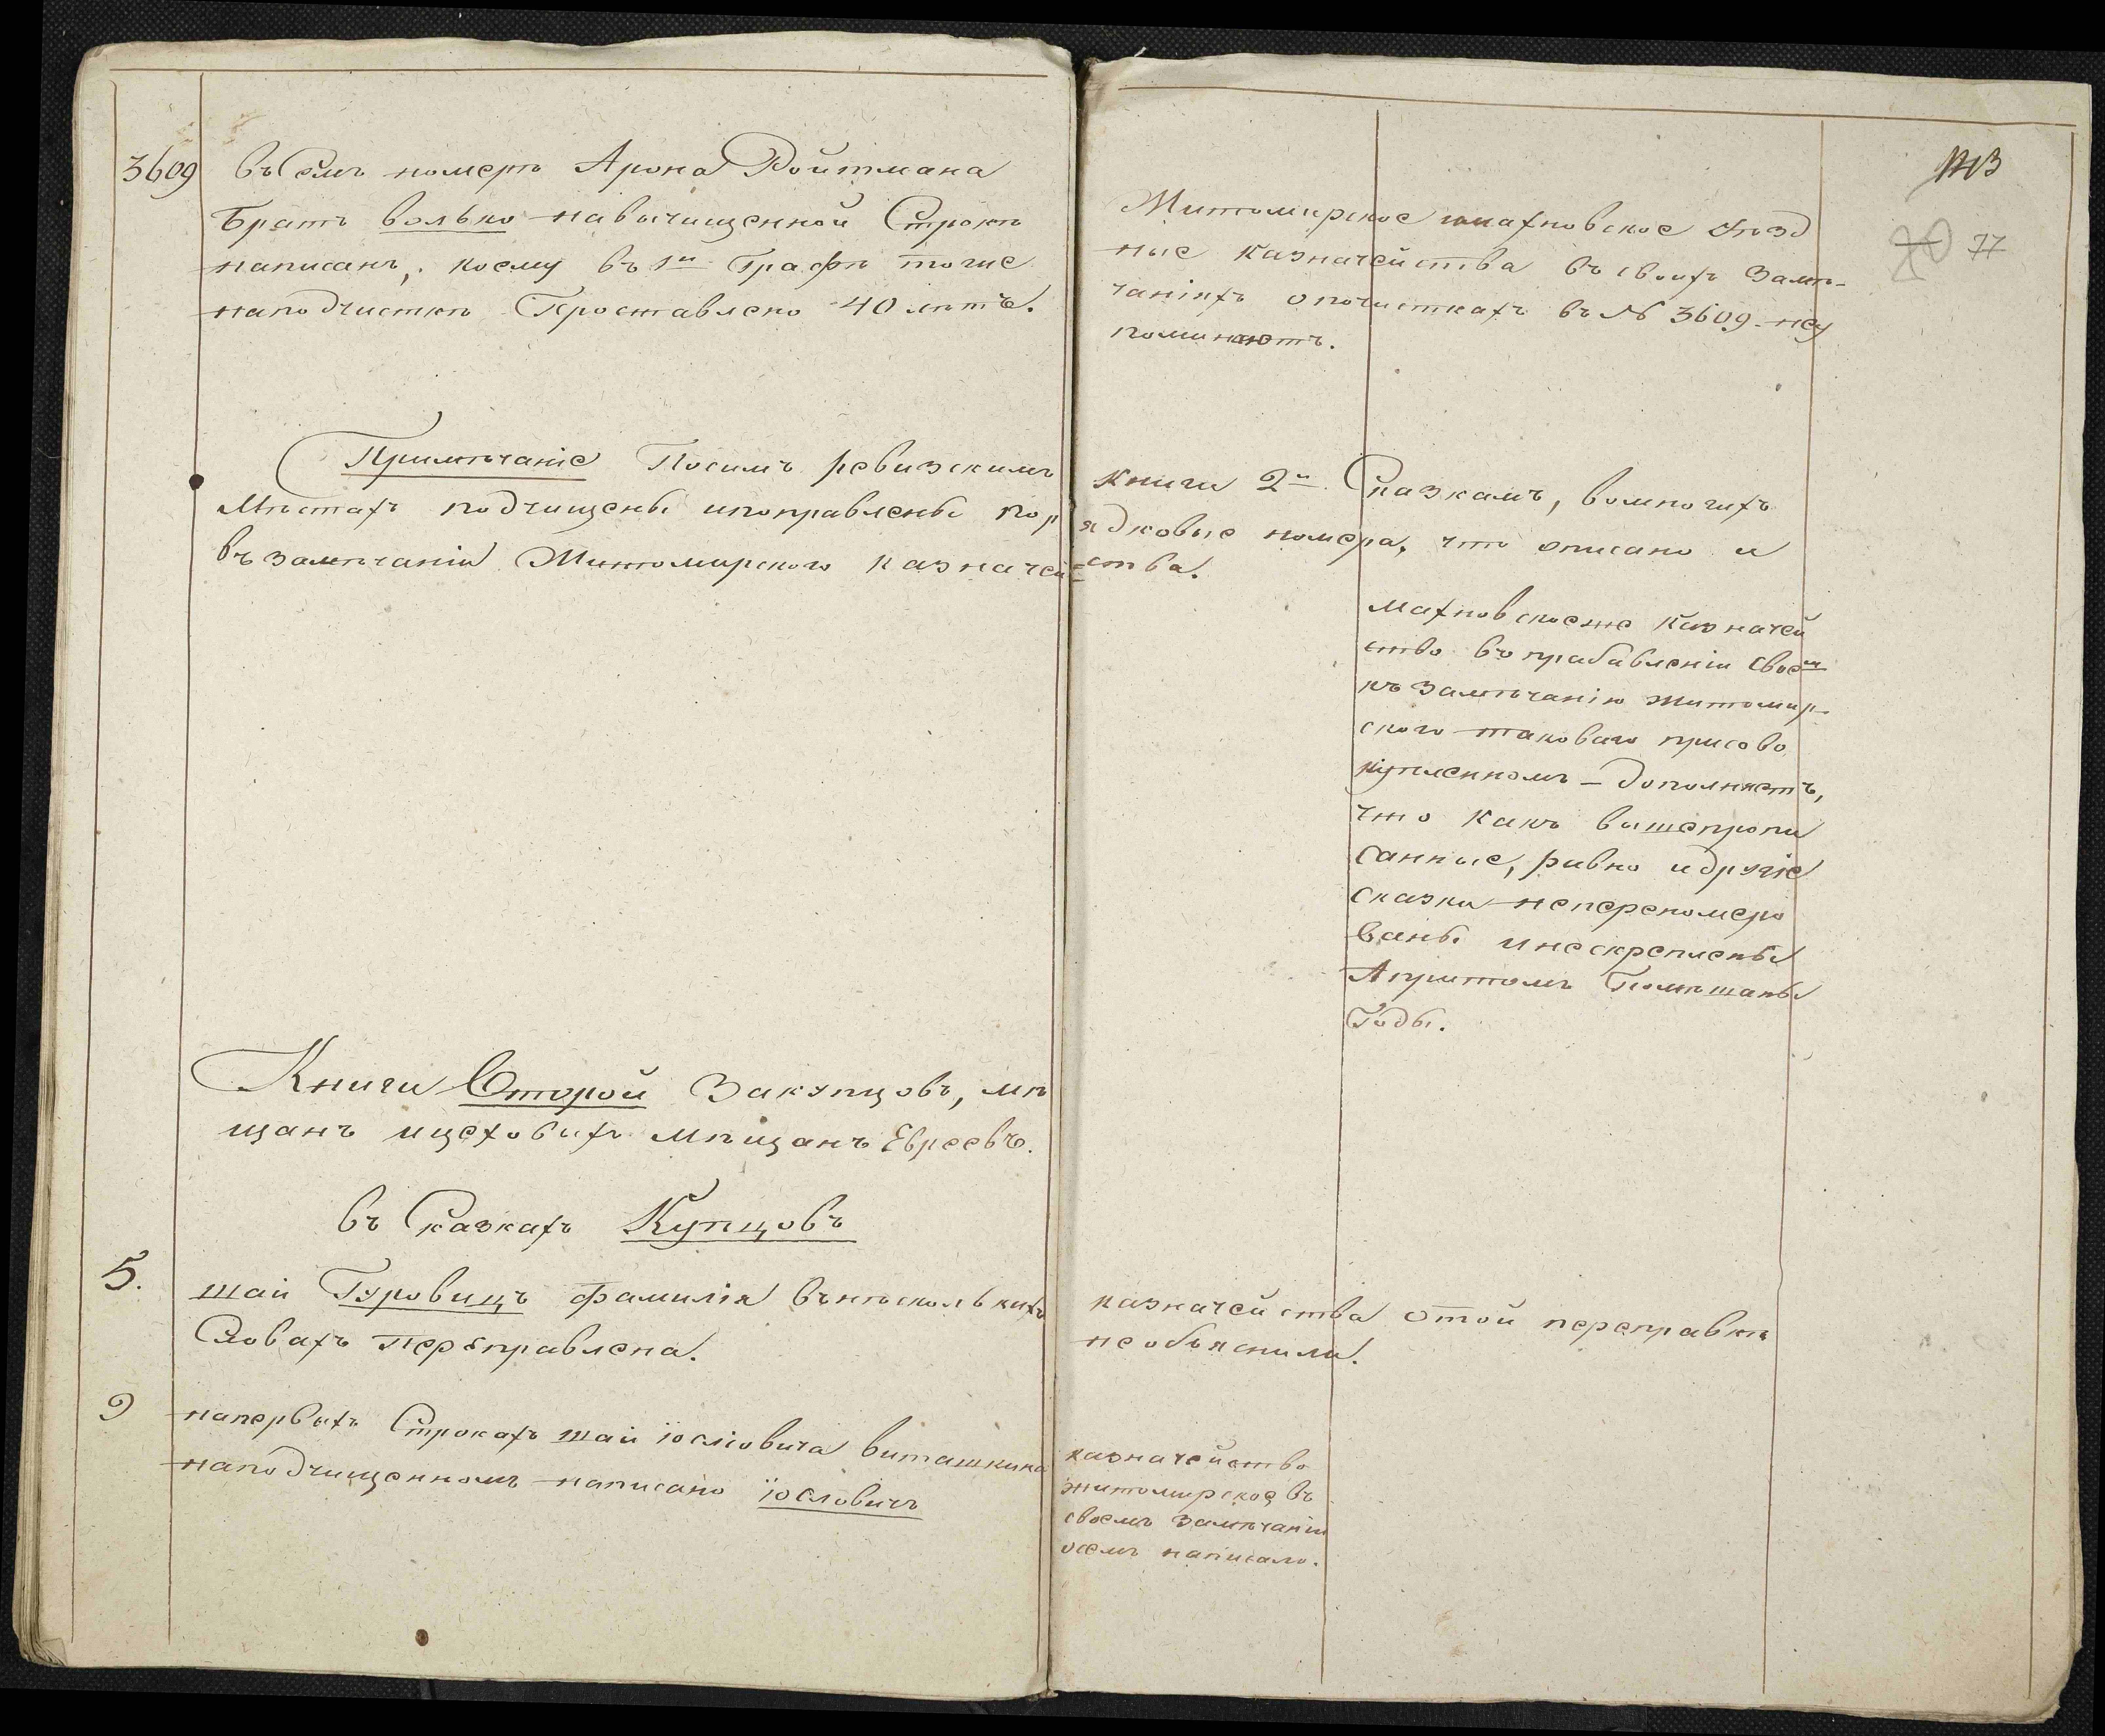 113
77
3609 въ Семъ номерѣ Арона Ройтмана
Братъ волько навычищенной Строкѣ
написанъ, коему въ 1й Графѣ тоже
наподчисткѣ Проставлено 40 лѣтъ.
Житомирское имахновское уѣзд
ные Казначейства въ своихъ замѣ-
чаніяхъ опочисткахъ въ № 3609 неу
поминаютъ.
Примѣчаніе Посимъ ревизскимъ книги 2й Сказкамъ, вомногихъ
Мѣстахъ подчищены ипоправлены порядковые номера, что описано и
въ замѣчаніи Житомирского казначей=ства.
махновскоеже Казначей
ство въ прибавленіи своем
къ замѣчанію житомир-
ского таковаго присово
купленномъ – дополняетъ,
что какъ вышепропи
санные, равно идругіе
сказки неперенумеро
ваны инескреплены
Апритомъ Помѣшаны
Годы.
Книги Второй Закупцовъ, мѣ
щанъ ицеховыхъ мѣщанъ Евреевъ.
въ Сказкахъ Купцовъ
5. шаи Гуровицъ фамилія внѣсколькихъ
Словахъ переправлена.
казначейства отой переправкѣ
необъяснили.
9 напервыхъ Строкахъ шаи іосіовича виташкина
наподчищенномъ написано іосіовичъ
казначейство
житомирское въ
своемъ замѣчаніи
осемъ написало.